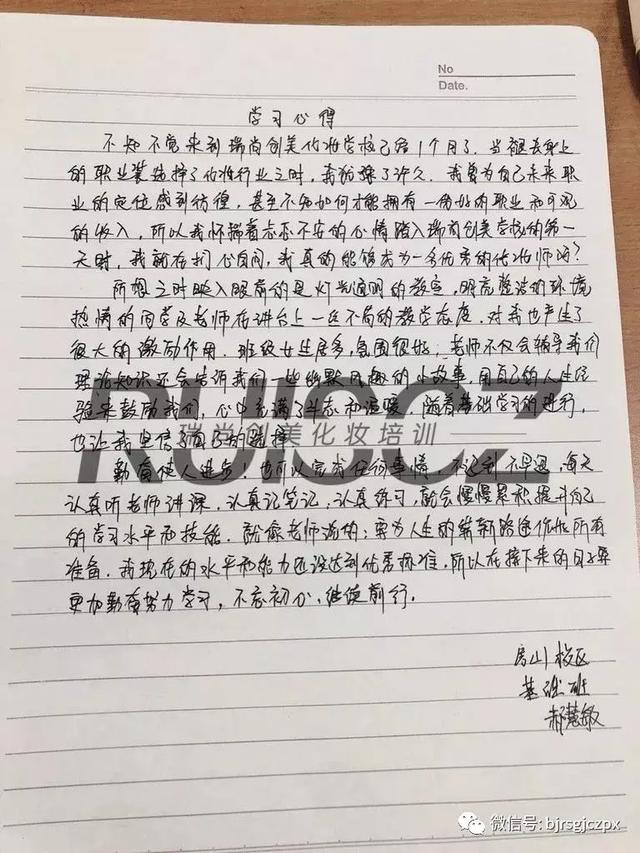 No
Date.
学习心得
不知不觉来到瑞尚创美化妆学校已经1个月了。当褪去身上
的职业装选择了化妆行业之时，我犹豫了许久。我曾为自己未来职
业的定位感到彷徨，甚至不知如何才能拥有一份好的职业和可观
的收入，所以我怀揣着忐忑不安的心情踏入瑞尚创美学校的第一
天时，我就在扪心自问，我真的能够成为一名优秀的化妆师吗？
所想之时映入眼前的是灯光通明的教室，明亮整洁的环境
热情的同学及老师在讲台上一丝不苟的教学态度，对我也产生了
很大的激励作用。班级女生居多，氛围很好；老师不仅会辅导我们
理论知识还会告诉我们一些幽默风趣的小故事，用自己的人生经
验来鼓励我们，心中充满了斗志和温暖。随着基础学习的进行，
也让我坚信了自己的选择
RUISCZ
瑞尚创美化妆培训
勤奋使人进步！也可以完成任何事情，不迟到不早退，每天
认真听老师讲课，认真记笔记，认真练习，就会慢慢累积提升自己
的学习水平和技能。就像老师说的：要为人生的崭新路途做好所有
准备。我现在的水平和能力还没达到优秀标准，所以在接下来的日子要
更加勤奋努力学习，不忘初心，继续前行。
房山校区
基础班
郝慧敏
微信号: bjrsgjczpx